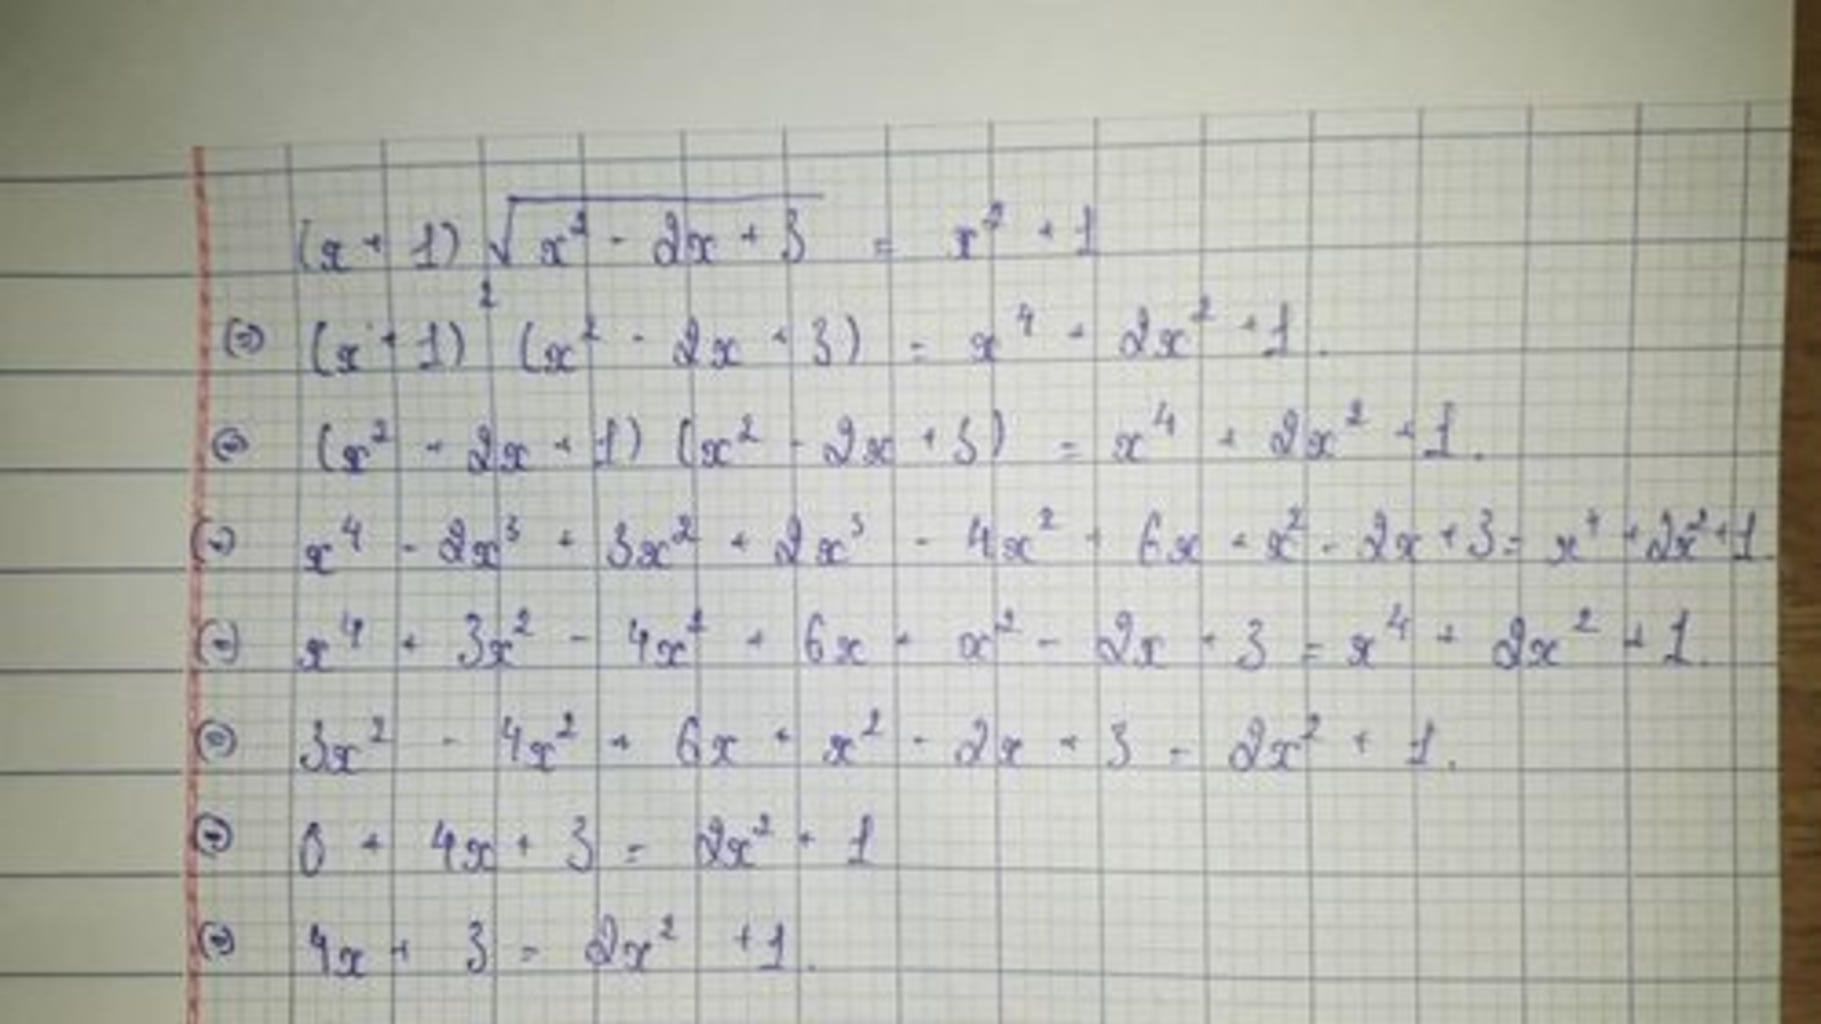 (x + 1) √(x² - 2x + 3) = x² + 1
⇔ (x + 1)² (x² - 2x + 3) = x⁴ + 2x² + 1.
⇔ (x² + 2x + 1) (x² - 2x + 3) = x⁴ + 2x² + 1.
⇔ x⁴ - 2x³ + 3x² + 2x³ - 4x² + 6x + x² - 2x + 3 = x⁴ + 2x² + 1.
⇔ x⁴ + 3x² - 4x² + 6x + x² - 2x + 3 = x⁴ + 2x² + 1.
⇔ 3x² - 4x² + 6x + x² - 2x + 3 = 2x² + 1.
⇔ 0 + 4x + 3 = 2x² + 1
⇔ 4x + 3 = 2x² + 1.